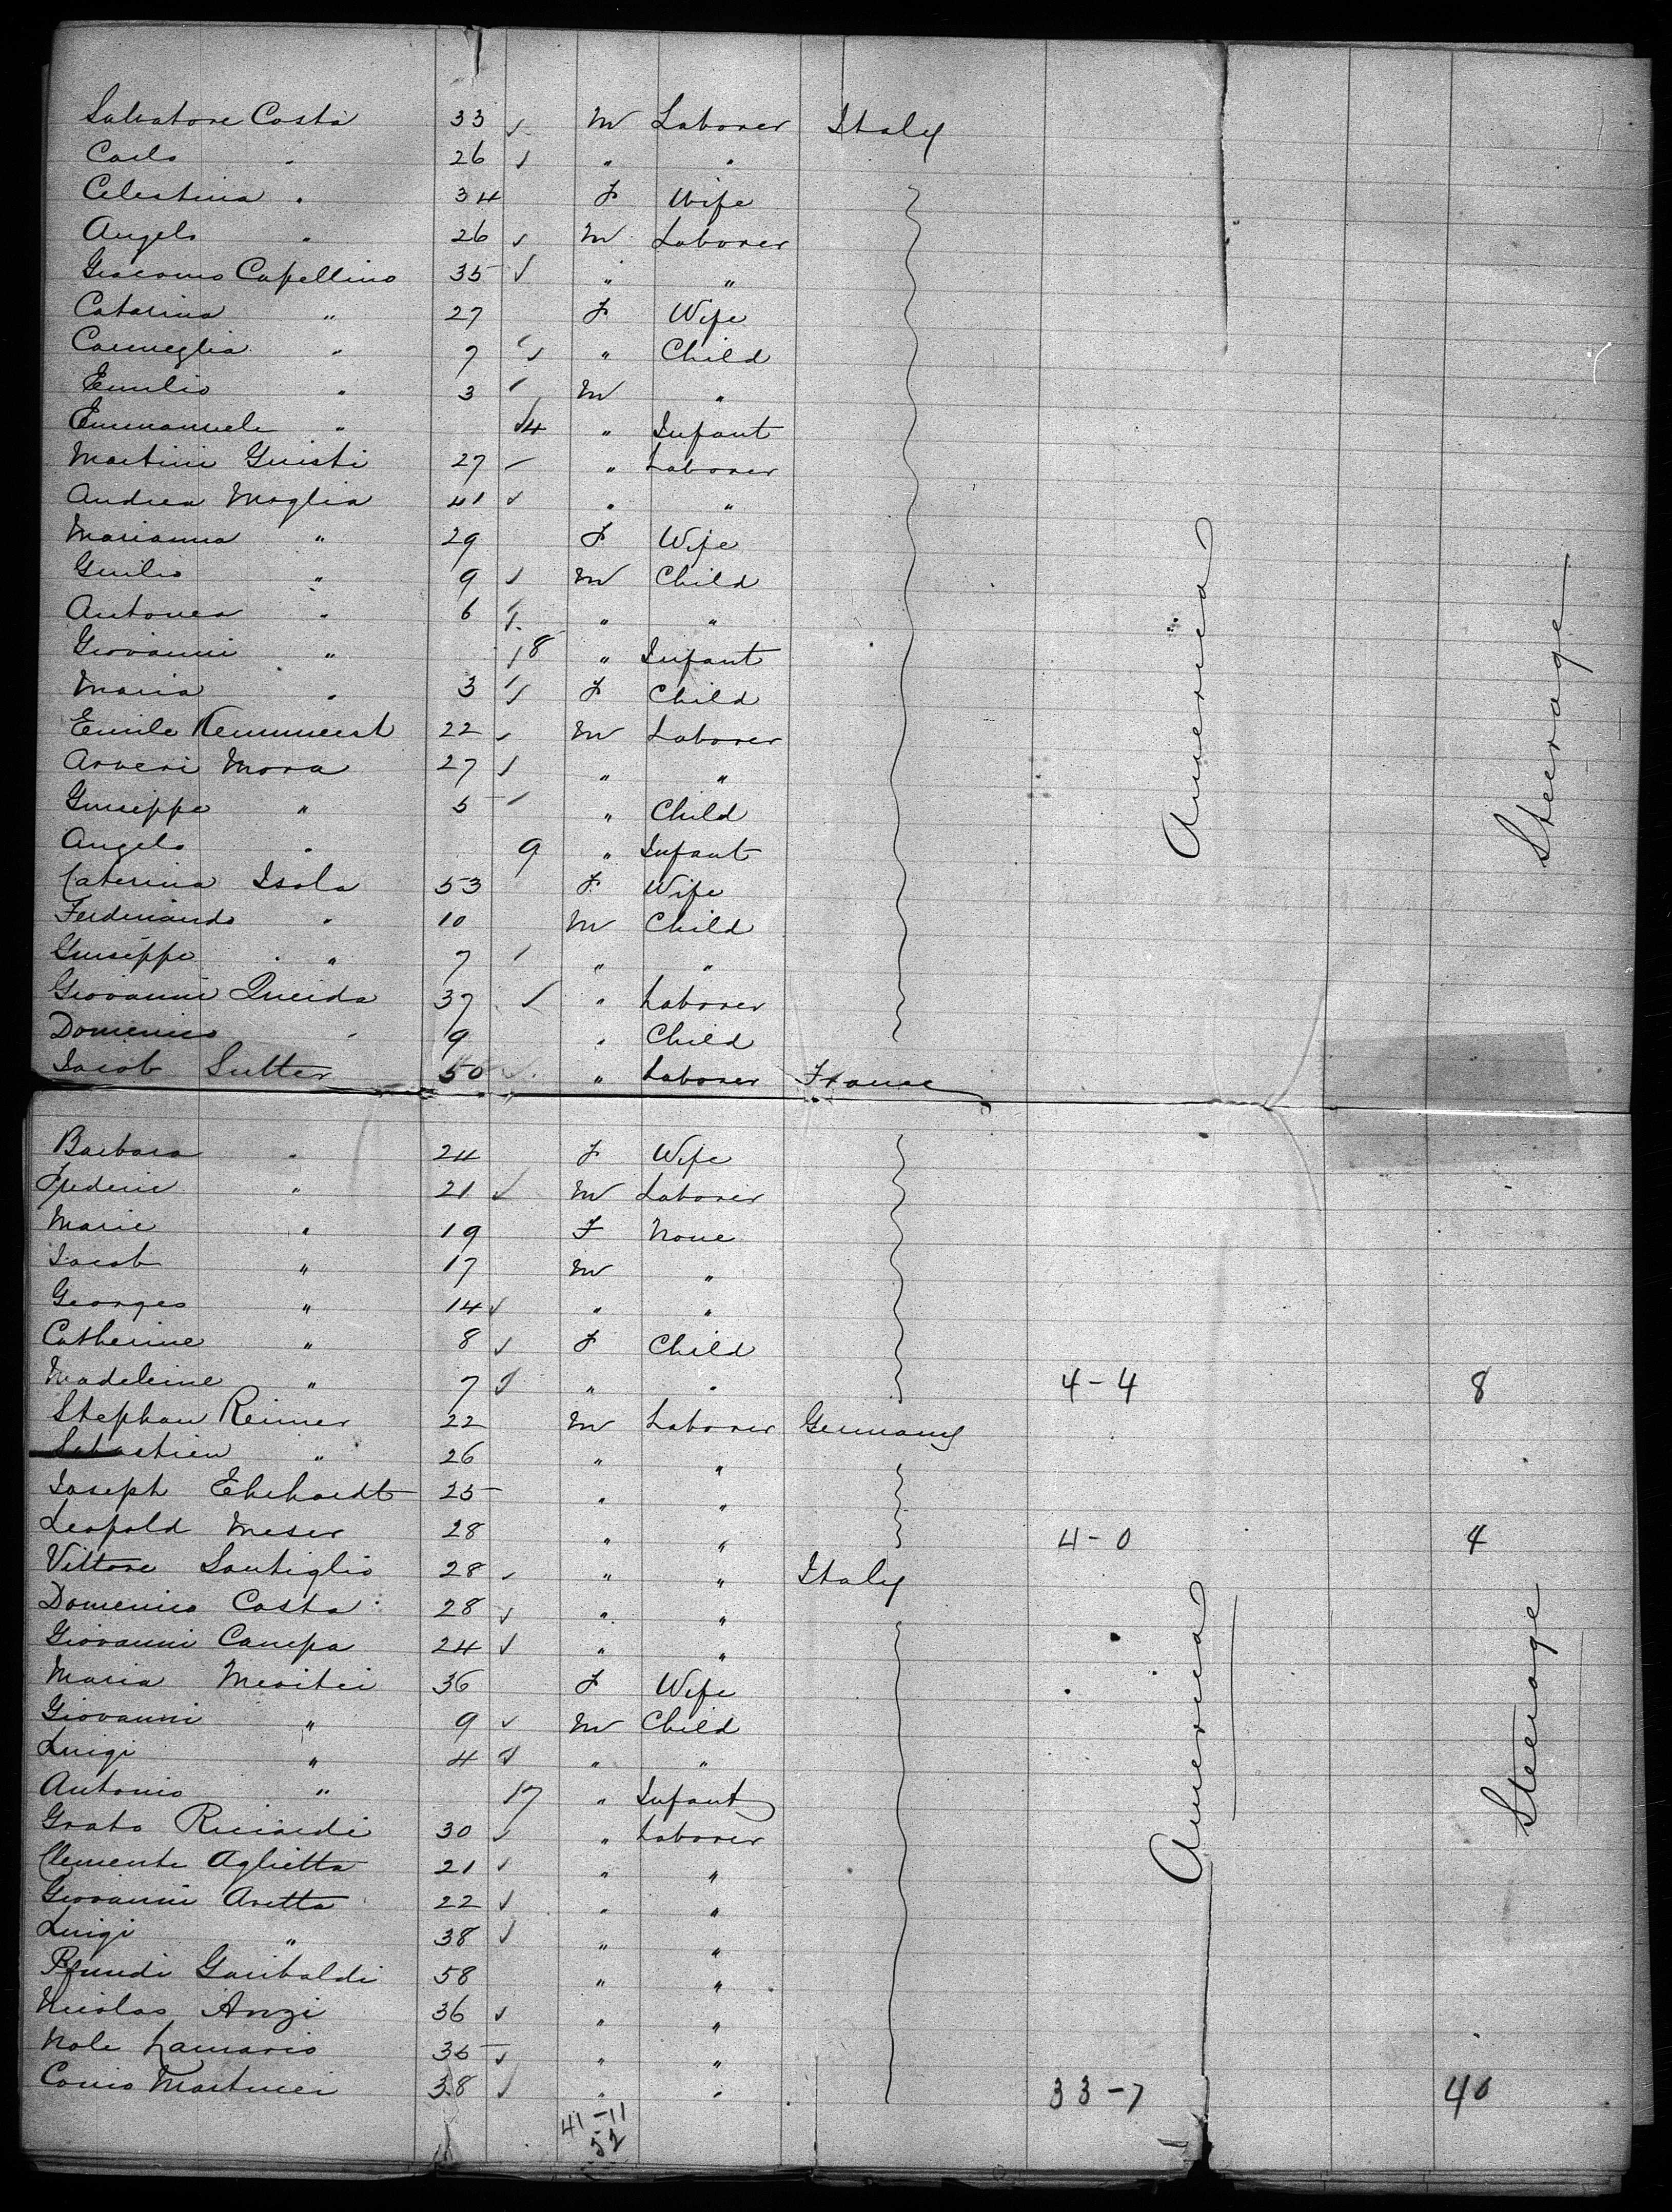 Salvatore Costa 33 M Laborer Italy
Carlo " 26 " "
Celestina " 34 F Wife
Angelo " 26 M Laborer
Giacomo Capellino 35 " "
Catarina " 27 F Wife
Carmeglia " 7 " Child
Emilio " 3 M "
Emmanuele " 4 " Infant
Martini Guisti 27 " Laborer
Andrea Moglia 41 " "
Marianna " 29 F Wife
Guilio " 9 M Child
Antonea " 6 " "
Giovanni " 8 " Infant
Maria " 3 F Child
Emile 22 M Laborer
Arveri Mora 27 " "
Guiseppe " 5 " Child
Angelo " 9 " Infant
Caterina Isola 53 F Wife
Ferdinando " 10 M Child
Guiseppe " 7 " "
Giovanni 37 " Laborer
Domenico " 9 " Child
Jacob Sutter 50 " Laborer France
America
Steerage
Barbara " 24 F Wife
Frederic " 21 M Laborer
Marie " 19 F None
Jacob " 17 M "
Georges " 14 " "
Catherine " 8 F Child
Madeleine " 7 " " 4-4 8
Stephan Reimer 22 M Laborer Germany
Sebastien " 26 " "
Joseph Ehrhardt 25 " "
Leopold Meser 28 " " 4-0 4
Vittore Santiglio 28 " " Italy
Domenico Costa 28 " "
Giovanni Canepa 24 " "
Maria 36 F Wife
Giovanni " 9 M Child
Luigi " 4 " "
Antonio " 7 " Infant
Grato Ricciardi 30 " Laborer
Clemente Aglietta 21 " "
Giovanni Avetta 22 " "
Luigi " 38 " "
Garibaldi 58 " "
Nicolas Anzi 36 " "
Nole 35 " "
Martucci 38 " " 33-7 40
America
Steerage
41-11
52